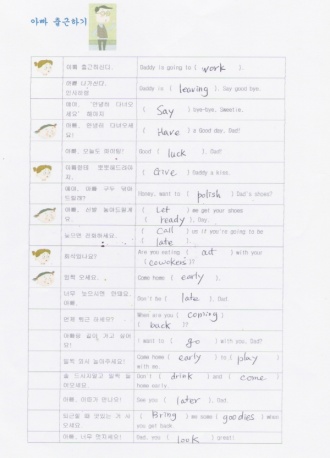 아빠 출근하기
아빠 출근하신다. Daddy is going to ( work ).
아빠 나가신다. Daddy is ( leaving ). Say good bye.
인사해야
얘야, "안녕히 다녀오세요" 해야지 ( Say ) bye-bye, Sweetie.
아빠, 안녕히 다녀오세요! ( Have ) a Good day, Dad!
아빠, 오늘도 파이팅! Good ( luck ) Dad!
( Give ) Daddy a kiss.
얘야, 아빠 구두 닦아 드릴까? Honey, want to ( polish ) Dad's shoes?
아빠, 신발 놓아드릴게요. ( Let ) me get your shoes
( ready ), Day.
늦으면 전화하세요. ( Call ) us if you're going to be
( late ).
회식있나요? Are you eating ( out ) with your
( coworkers )?
일찍 오세요. Come home ( early ).
너무 늦으시면 안돼요. 아빠. Don't be ( late ), Dad.
언제 퇴근 하세요? When are you ( coming )
( back )?
아빠랑 같이 가고 싶어? Want to ( go ) with you, Dad?
일찍 와서 놀아주세요! Come home ( early ) to ( play )
with me.
술 드시지말고 일찍 들어오세요 Don't ( drink ) and ( come )
home early
아빠, 이따가 만나요! See you ( later ), Dad.
퇴근할 때 맛있는 거 사오세요 ( Bring ) me some ( goodies ) when
you get back.
아빠, 너무 멋지세요! Dad, you ( look ) great!